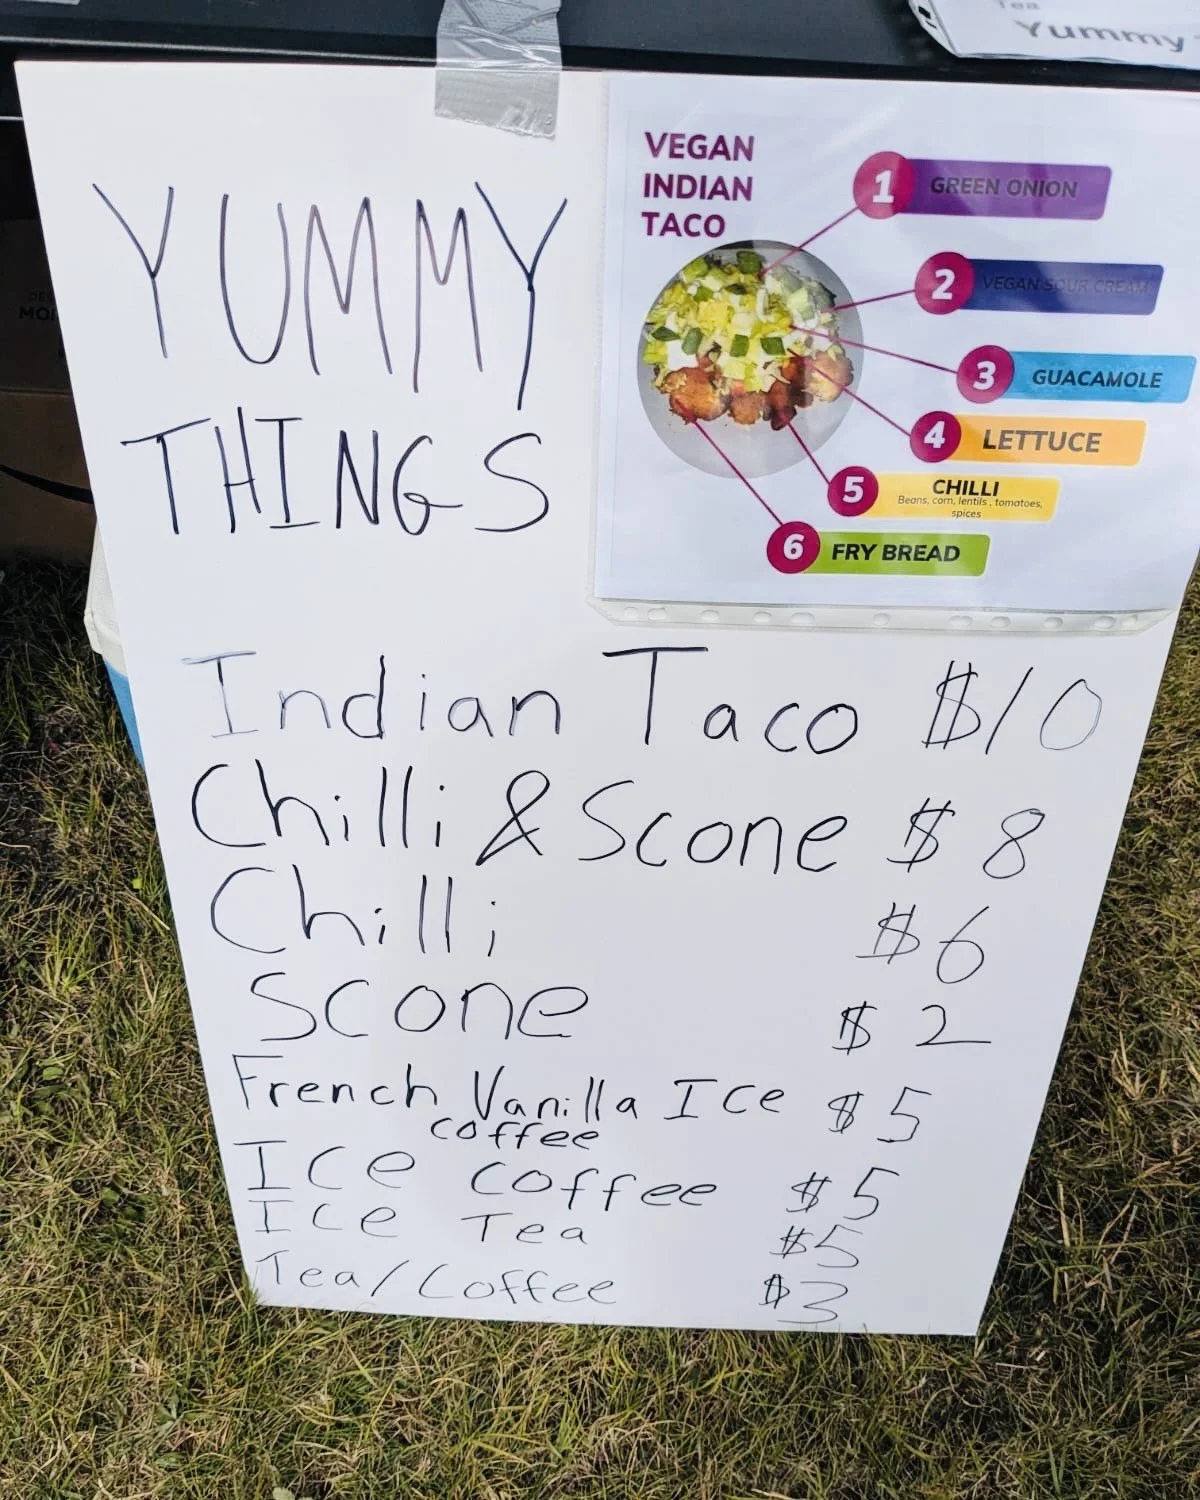 Tea
Yummy
YUMMY
THINGS
VEGAN
INDIAN
TACO
1 GREEN ONION
2 VEGAN SOUR CREAM
3 GUACAMOLE
4 LETTUCE
5 CHILLI
Beans, corn, lentils , tomatoes,
spices
6 FRY BREAD
Indian Taco $10
Chilli & Scone $8
Chilli $6
Scone $2
French Vanilla Ice $5
coffee
Ice coffee $5
Ice Tea $5
Tea/Coffee $3